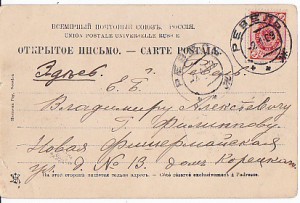 ВСЕМІРНЫЙ ПОЧТОВЫЙ СОЮЗЪ. РОССІЯ.
UNION POSTALE UNIVERSELLE RUSSIE
ОТКРЫТОЕ ПИСЬМО. — CARTE POSTALE
РЕВЕЛЬ
Здѣсь.
Е. В.
Владиміру Алексѣевичу
Г. Филиппову
Новая
ул. д. № 13. домъ
На этой сторонѣ пишется только адресъ. — Côté réservé exclusivement à l'adresse.